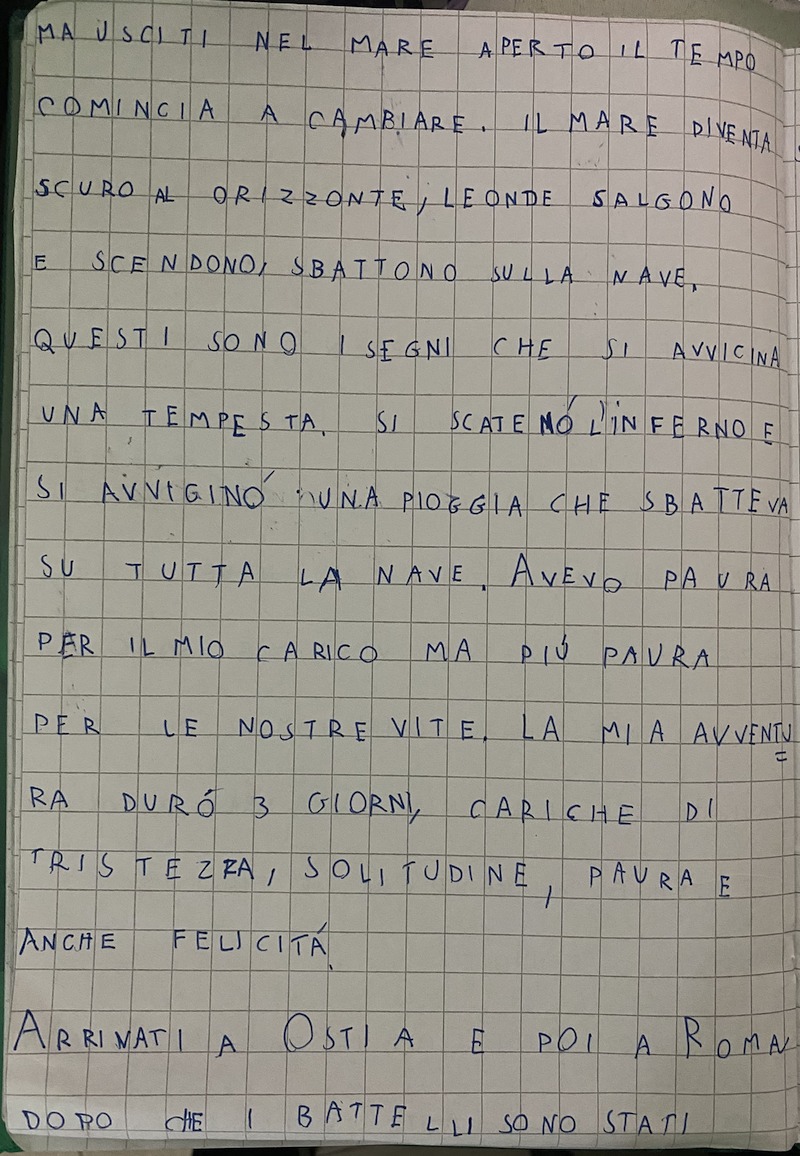 MA USCITI NEL MARE APERTO IL TEMPO
COMINCIA A CAMBIARE. IL MARE DIVENTA
SCURO AL ORIZZONTE, LE ONDE SALGONO
E SCENDONO, SBATTONO SULLA NAVE.
QUESTI SONO I SEGNI CHE SI AVVICINA
UNA TEMPESTA. SI SCATENÓ L'INFERNO E
SI AVVIGINÓ UNA PIOGGIA CHE SBATTEVA
SU TUTTA LA NAVE. AVEVO PAURA
PER IL MIO CARICO MA PIÚ PAURA
PER LE NOSTRE VITE. LA MIA AVVENTU=
RA DURÓ 3 GIORNI, CARICHE DI
TRISTEZZA, SOLITUDINE, PAURA E
ANCHE FELICITÁ.
ARRIVATI A OSTIA E POI A ROMA
DOPO CHE I BATTELLI SONO STATI